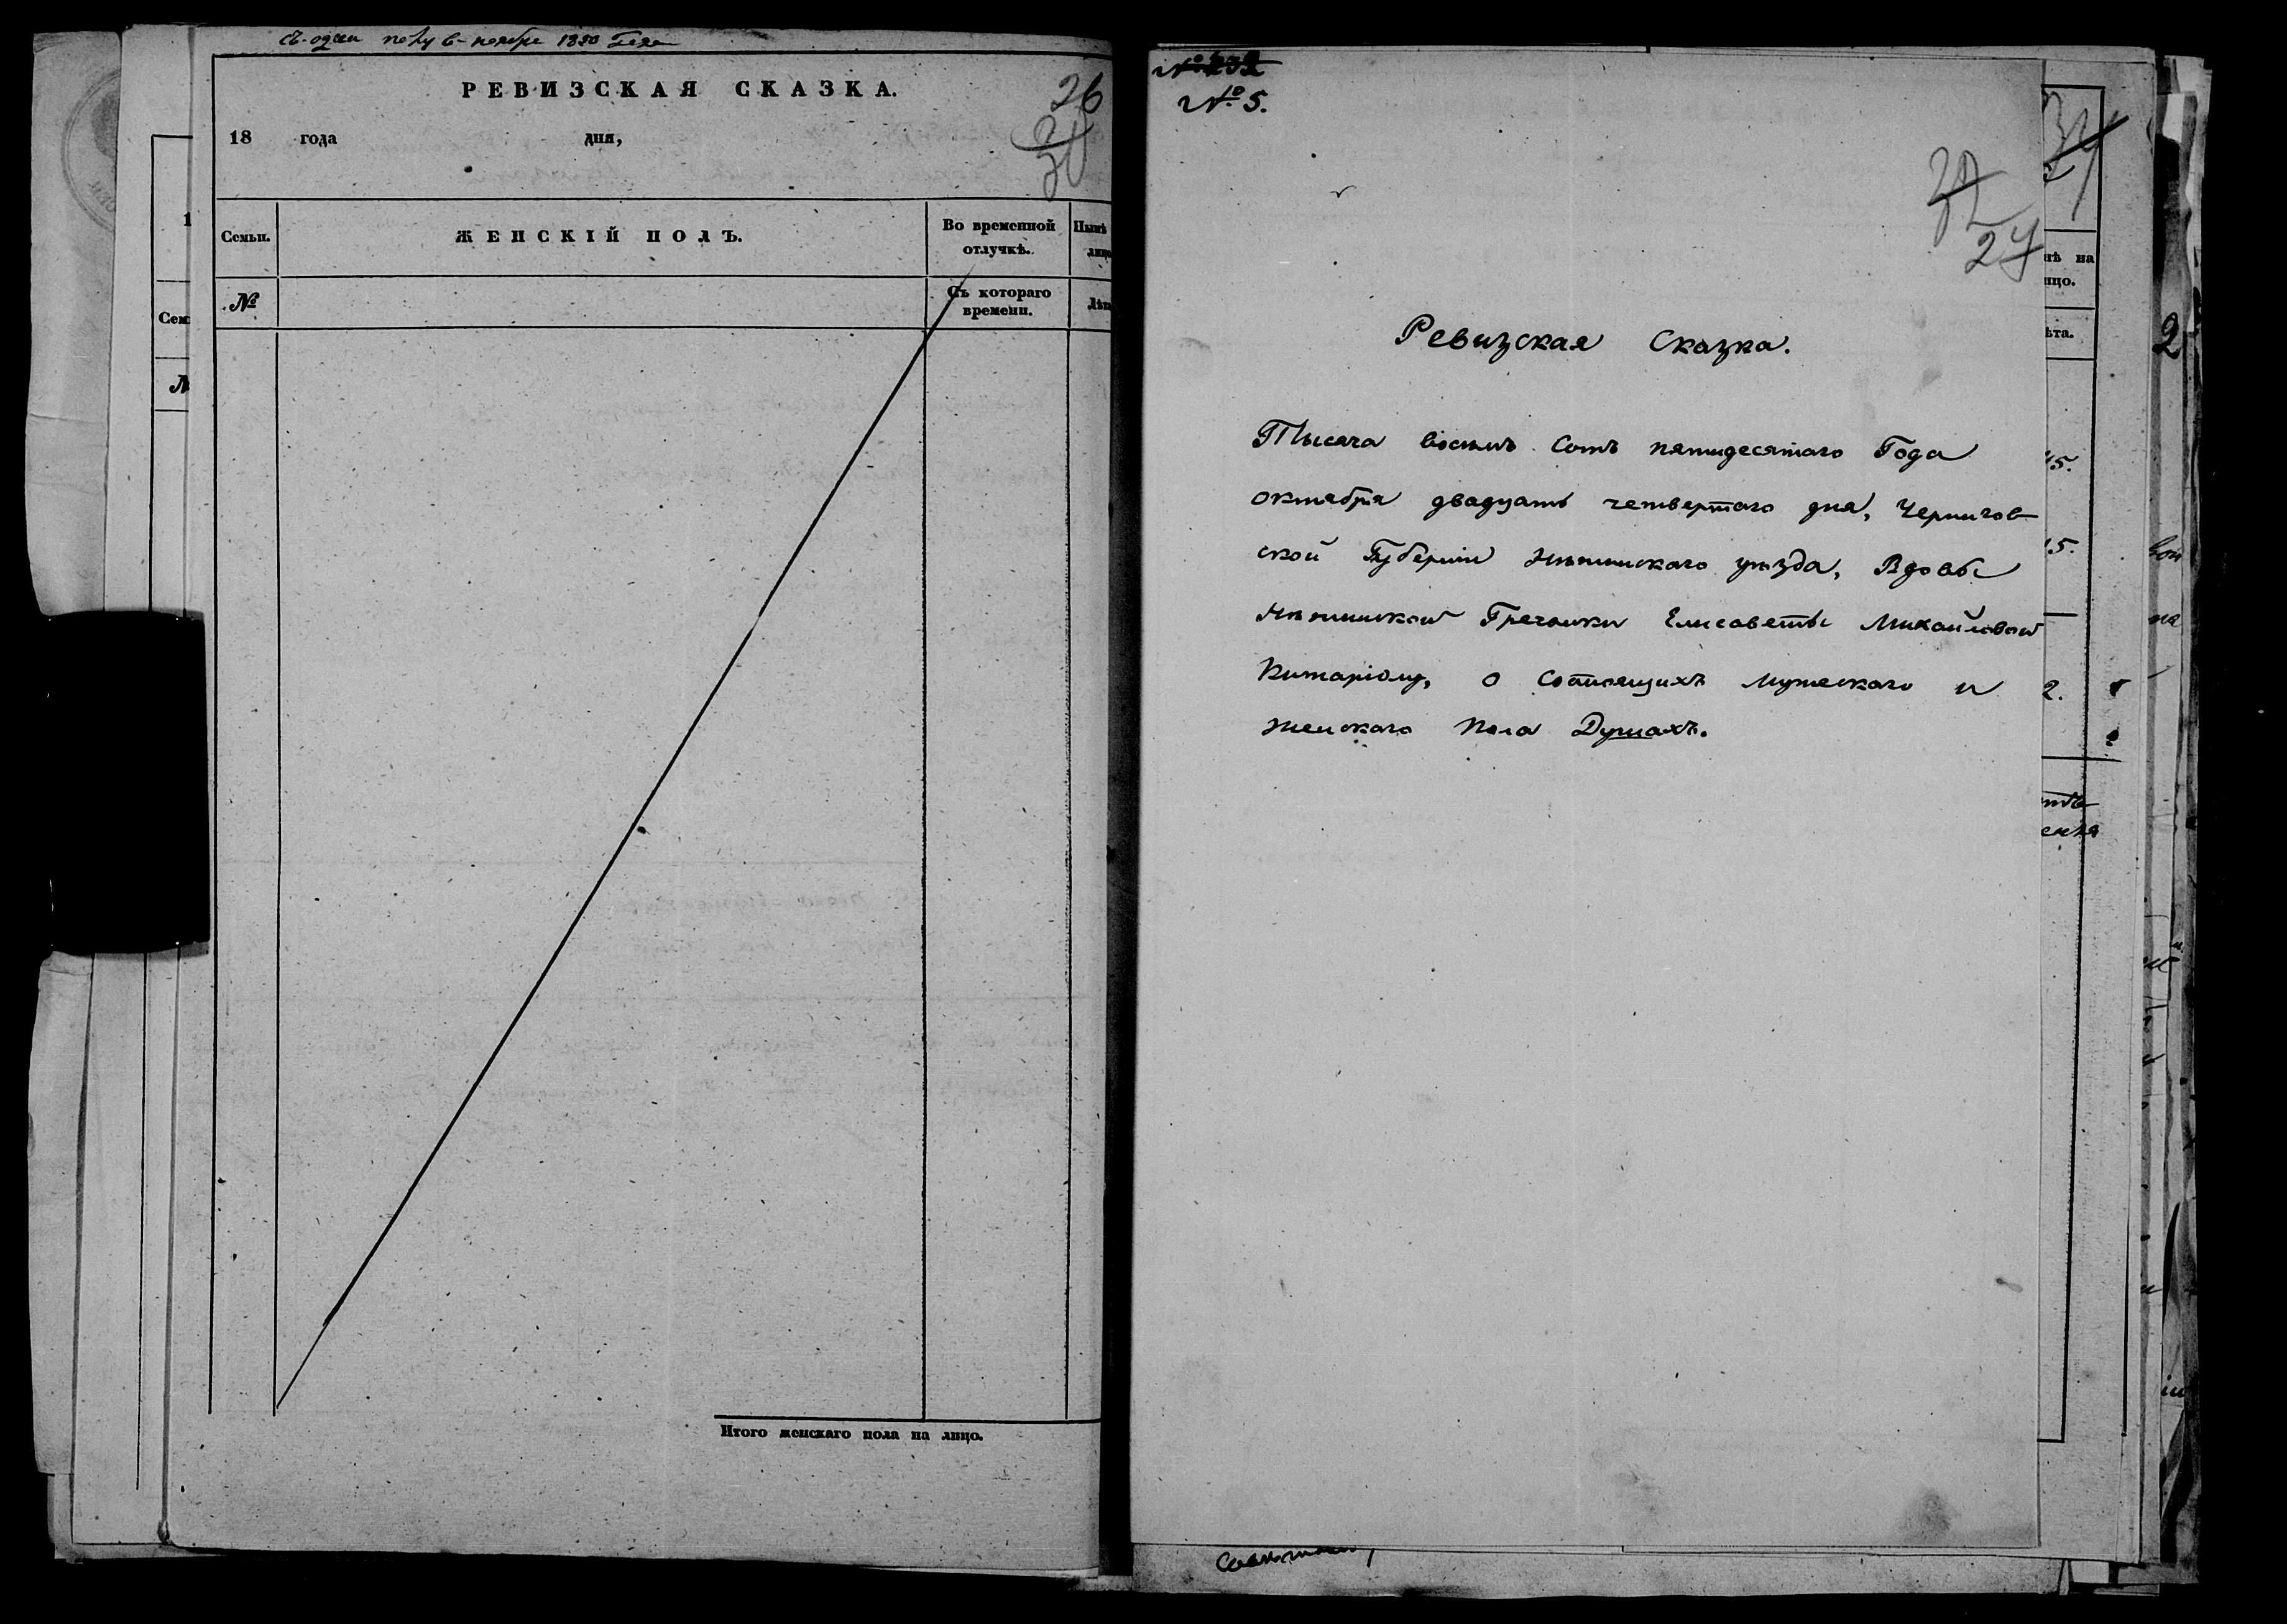 1850
РЕВИЗСКАЯ СКАЗКА.
26
18 года дня,
Семьи.
ЖЕНСКІЙ ПОЛЪ.
Во временной отлучкѣ.
Нынѣ
№
Съ котораго времени.
Лѣт
Итого женскаго пола на лицо.
1
Сем
№ 5.
27
Ревизская Сказка.
Тысяча восемь Сотъ пятидесятаго Года
октября двадцать четвертаго дня, Чернигов
ской Губерніи Нѣжинскаго уѣзда, Вдовы
Нѣжинской Гречанки Елисаветы Михайловой
о Состоящихъ мужескаго и
женскаго пола Душахъ.
нѣ на
ицо.
ѣта.
15.
15.
2.
2